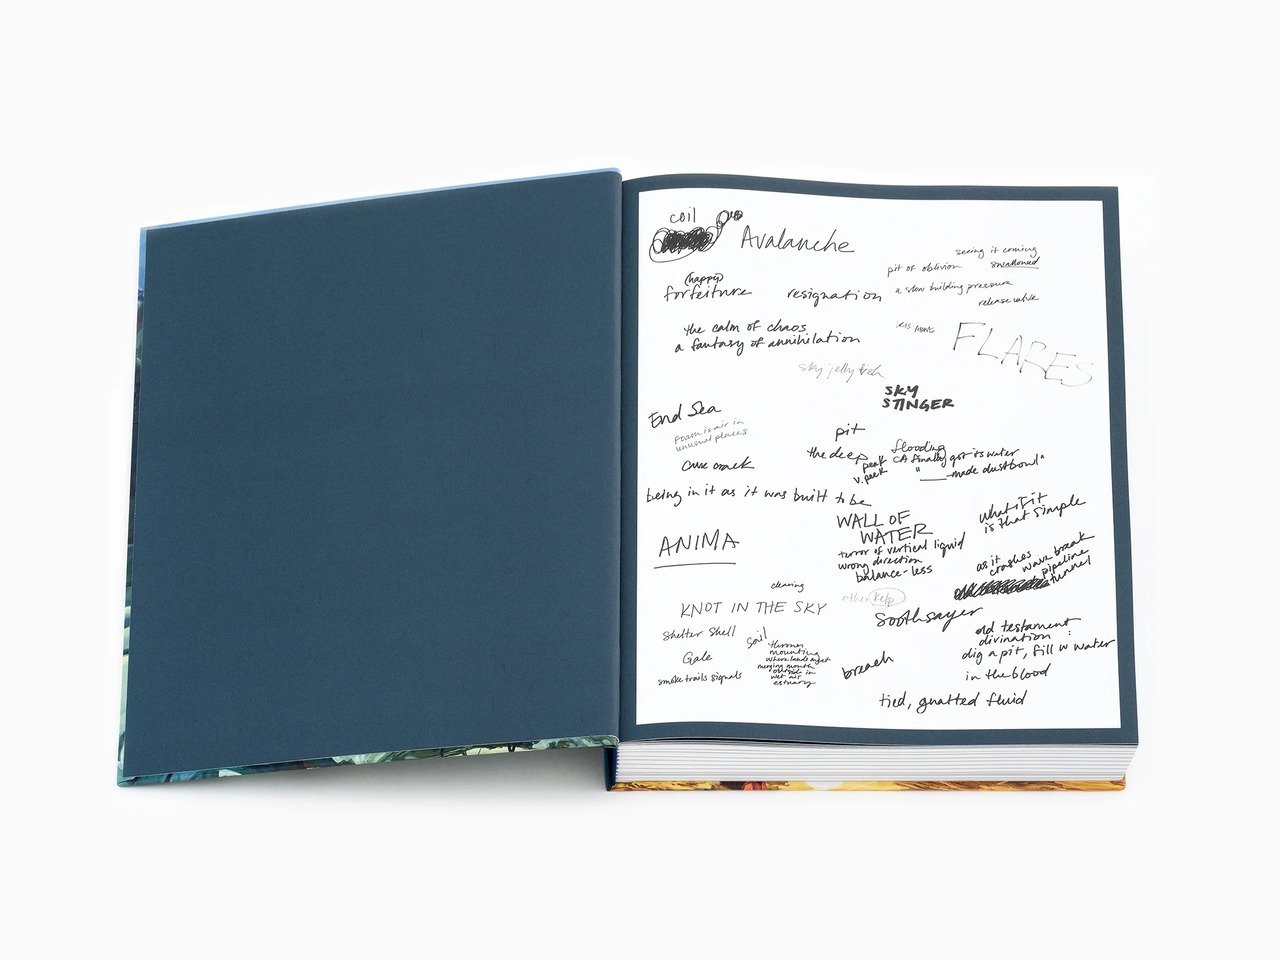 coil
Avalanche
seeing it coming
pit of oblivion swallowed
(happy)
forfeiture resignation
a slow building pressure
release valve
the calm of chaos
a fantasy of annihilation
FLARES
sky jelly fish
SKY
STINGER
End Sea
Foam is air in
unusual places
pit
the deep
peak
v. peek
flooding
CA finally got its water
"____-made dustbowl"
being in it as it was built to be
WALL OF
WATER
terror of vertical liquid
wrong direction
balance-less
what if it
is that simple
ANIMA
as it
crashes wave break
pipeline
tunnel
clearing
KNOT IN THE SKY
ether kelp
Soothsayer
Shelter Shell
Soil
Gale
smoke trails signals
mounting
merging mouth
outside in
wet air
estuary
breach
old testament
divination :
dig a pit, fill w water
in the blood
tied, gnatted fluid